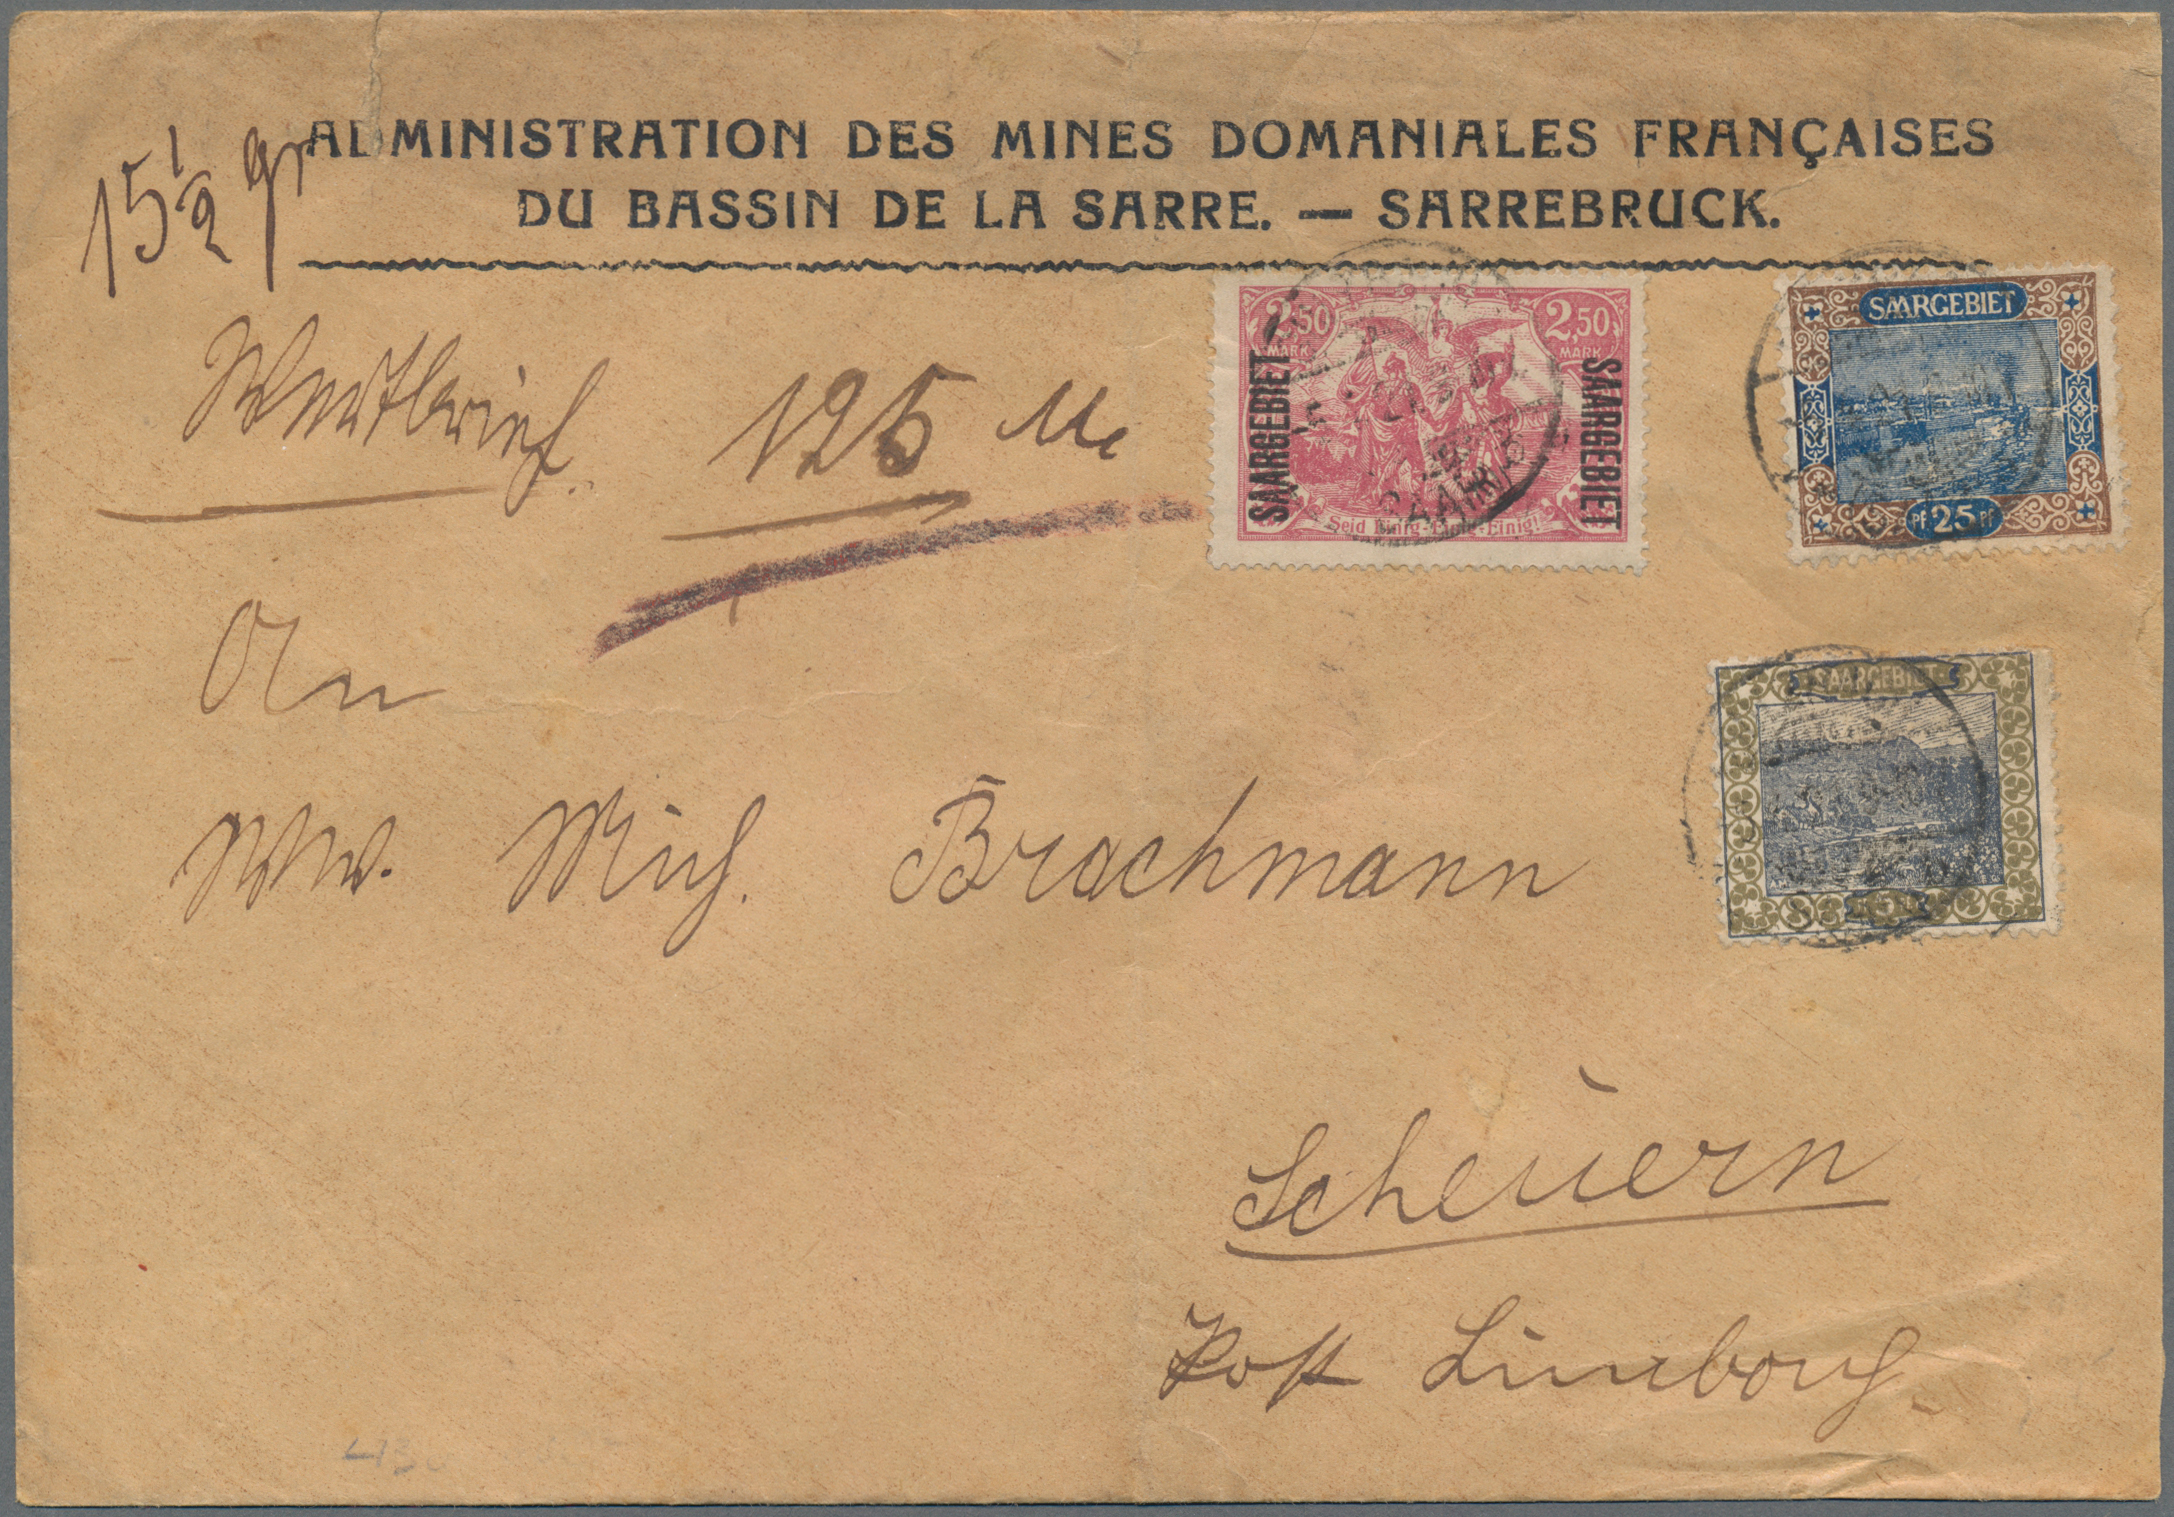 ADMINISTRATION DES MINES DOMANIALES FRANÇAISES
DU BASSIN DE LA SARRE. — SARREBRUCK.
15 1/2 gr
Wertbrief. 125 M
2,50 MARK 2,50 MARK
SAARGEBIET SAARGEBIET
Seid Einig Einig Einig!
SAARGEBIET
PF 25 PF
An
Mich. Brachmann
SAARGEBIET
Scheuern
Post Limbach